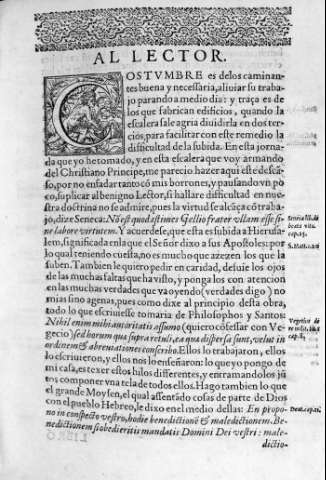 AL LECTOR.
COSTVMBRE es delos caminan-
tes buena y necessaria, aliuiar su traba-
jo parando a medio dia: y traça es de
los que fabrican edificios, quando la
escalera sale agria diuidirla en dos ter-
cios, para facilitar con este remedio la
difficultad de la subida. En esta jorna-
da que yo he tomado, y en esta escalera que voy armando
del Christiano Principe, me parecio hazer aqui este desca-
so, por no enfadar tanto có mis borrones, y pausando vn po
co, suplicar al benigno Lector, si hallare difficultad en
nuestra doctrina no se admire, pues la virtud se alcãça có traba-
jo, dize Seneca: Nõ est quod estimes Gellio frater vllam esse si-
ne labore virtutem. Y acuerdese, que esta es subida a Hierusa-
lem, significada en la que el Señor dixo a sus Apostoles: por
lo qual teniendo cuesta, no es mucho que azezen los que la
suben. Tambien le quiero pedir en caridad, desuie los ojos
de las muchas faltas que ha visto, y ponga los con atencion
en las muchas verdades que va oyendo (verdades digo) no
mias sino agenas, pues como dixe al principio desta obra,
todo lo que escriuiesse tomaria de Philosophos y Santos:
Nihil enim mihi autoritatis assumo (quiero cófessar con Ve-
gecio) sed horum qua supra retuli, ea qua dispersa sunt, velut in
ordinem & abreuiationes conscribo. Ellos lo trabajaron, ellos
lo escriuieron, y ellos nos lo enseñaron: lo que yo pongo de
mi casa, es texer estos hilos differentes, y entramandolos jũ
tos componer vna tela de todos ellos. Hago tambien lo que
el grande Moysen, el qual assentádo cosas de parte de Dios
con el pueblo Hebreo, le dixo en el medio dellas: En propo-
no in conspectu vestro, hodie benedictionē & maledictionem. Be-
nedictionem si obedieritis mandatis Domini Dei vestri: male-
dictio-
Seneca lib. de
beata vita.
S. Matth.
Vegetius de
cap. 8.
Deut. cap. 11.